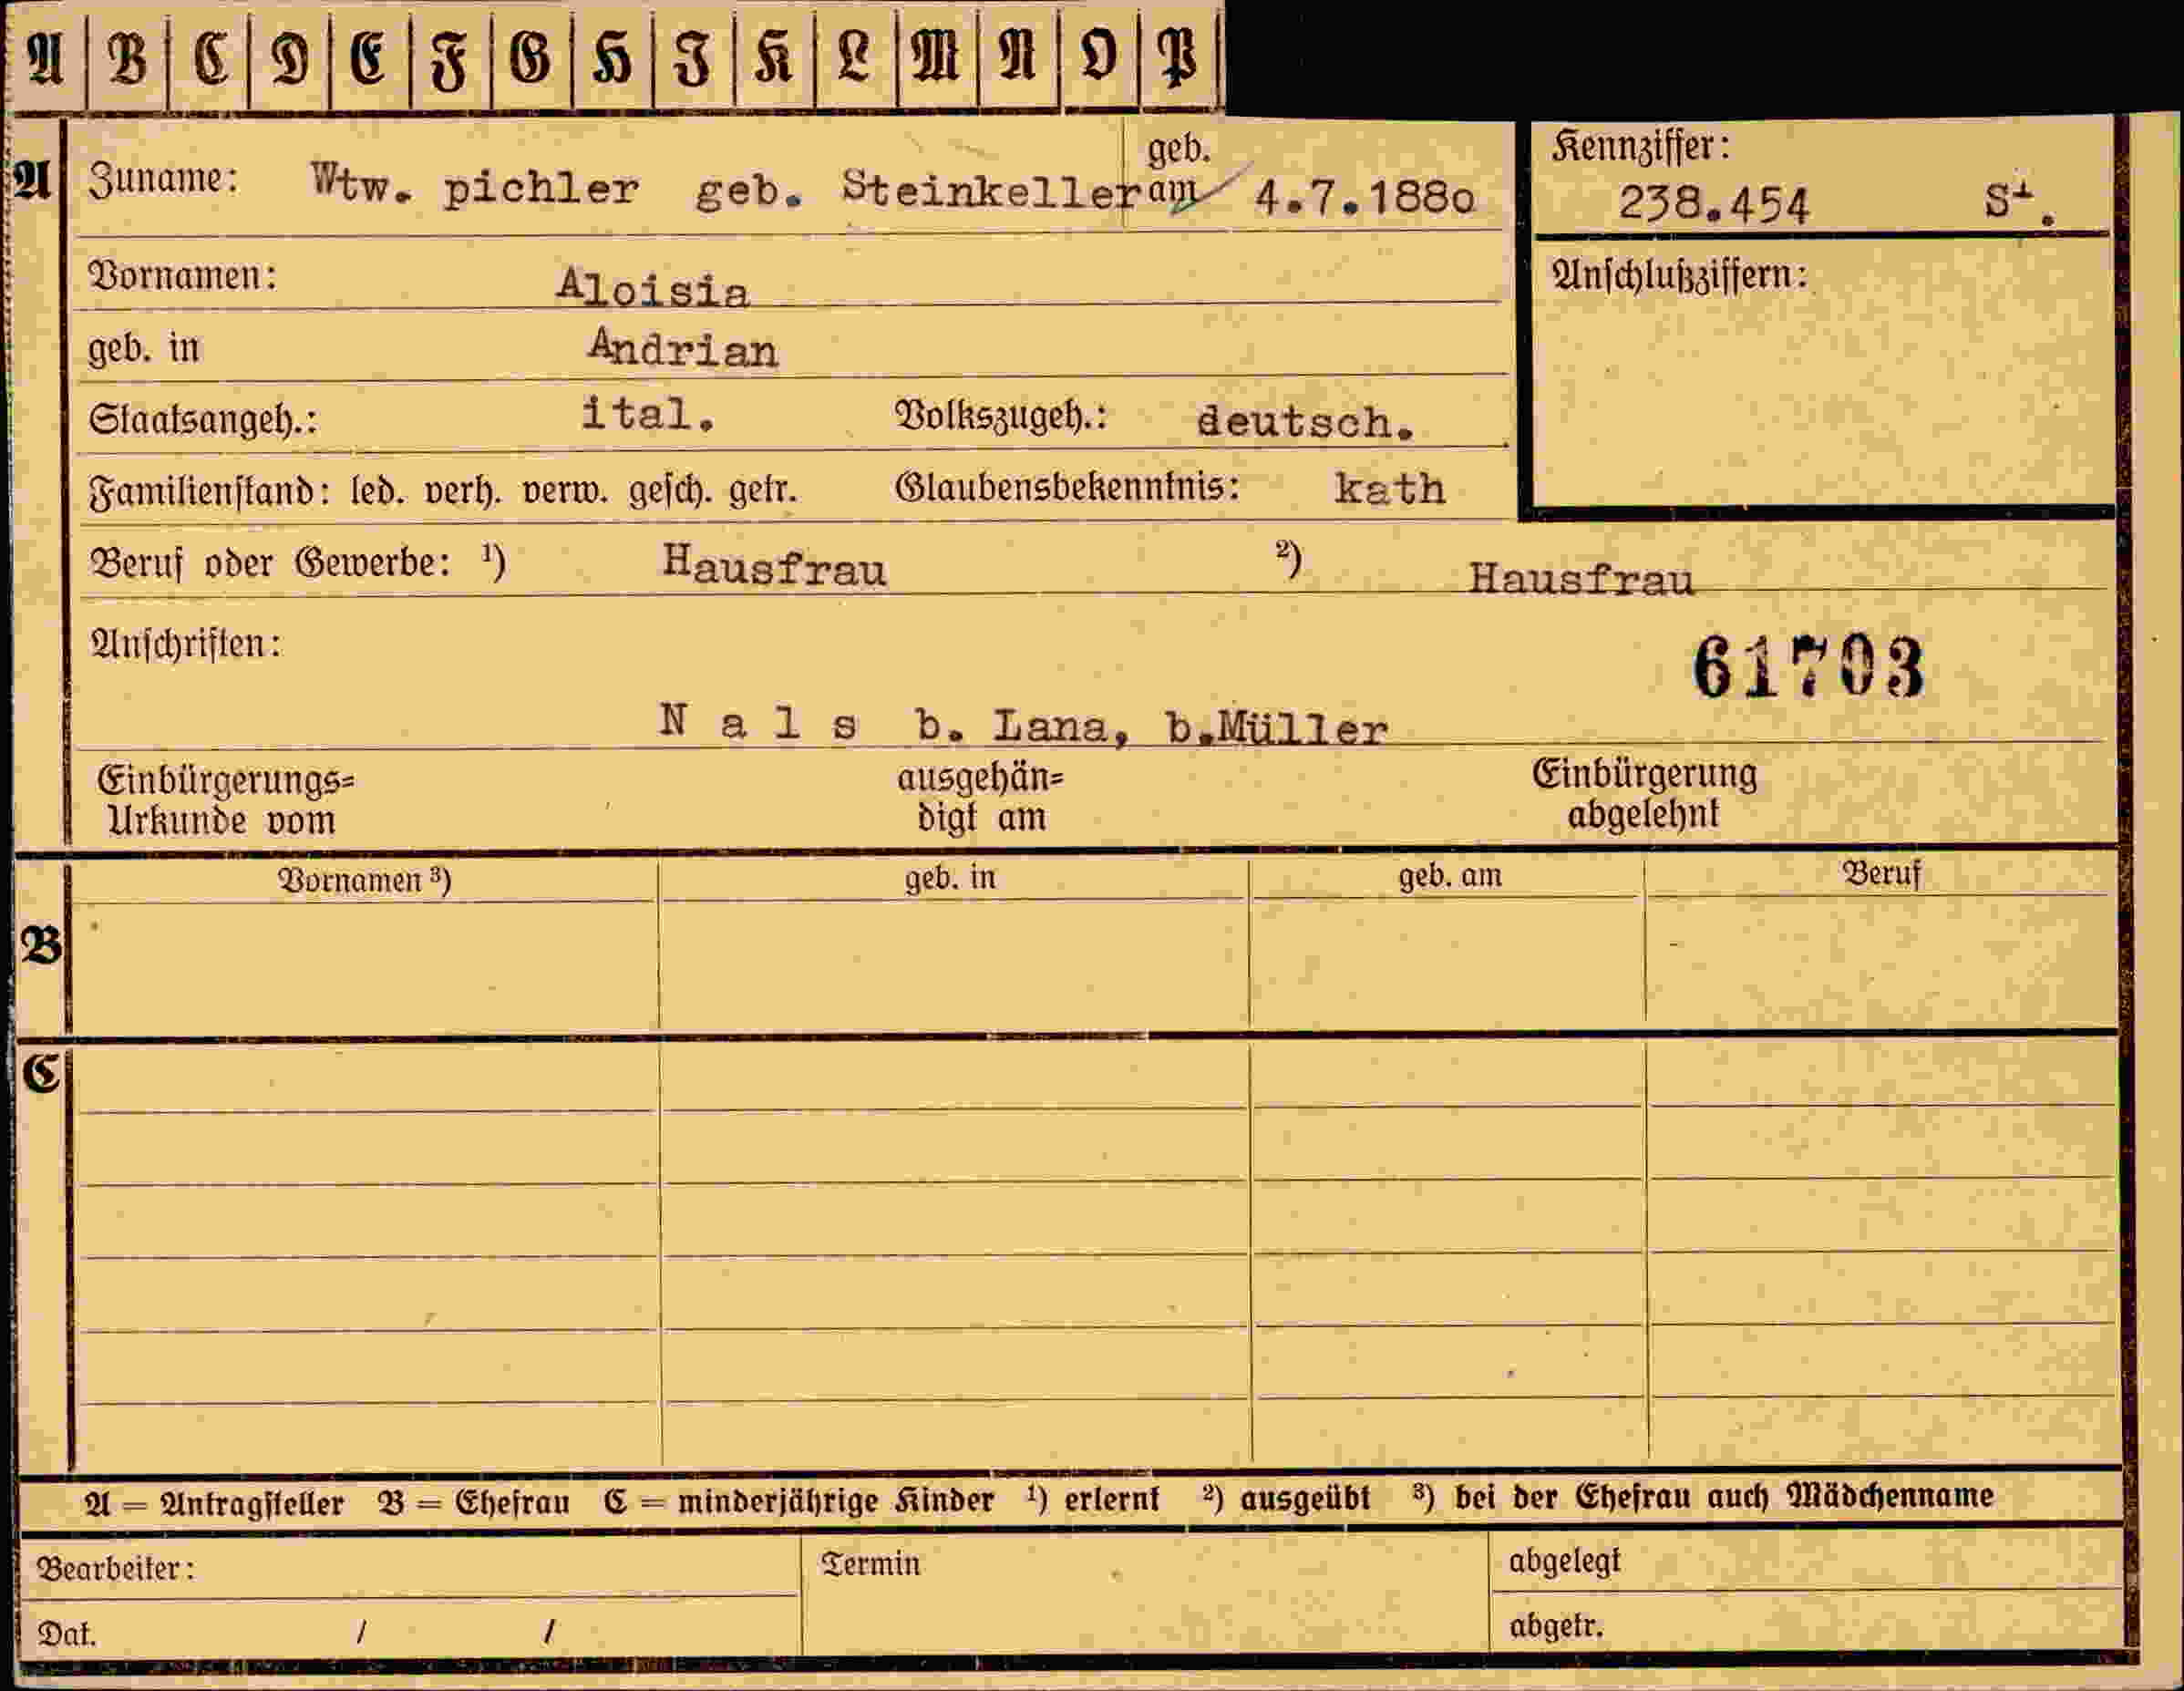 A B C D E F G H J K L M N O P
A Zuname: Wtw. pichler geb. Steinkeller geb. am 4.7.1880
Kennziffer:
238.454 S+.
Vornamen: Aloisia
Anschlußziffern:
geb. in Andrian
Staatsangeh.: ital. Volkszugeh.: deutsch.
Familienstand: led. verh. verw. gesch. getr. Glaubensbekenntnis: kath
Beruf oder Gewerbe: ¹) Hausfrau ²) Hausfrau
Anschriften:
61703
N a l s b. Lana, b.Müller
Einbürgerungs= ausgehän= Einbürgerung
Urkunde vom digt am abgelehnt
Vornamen ³) geb. in geb. am Beruf
B
C
A = Antragsteller B = Ehefrau C = minderjährige Kinder ¹) erlernt ²) ausgeübt ³) bei der Ehefrau auch Mädchenname
Bearbeiter: Termin abgelegt
Dat. / / abgetr.